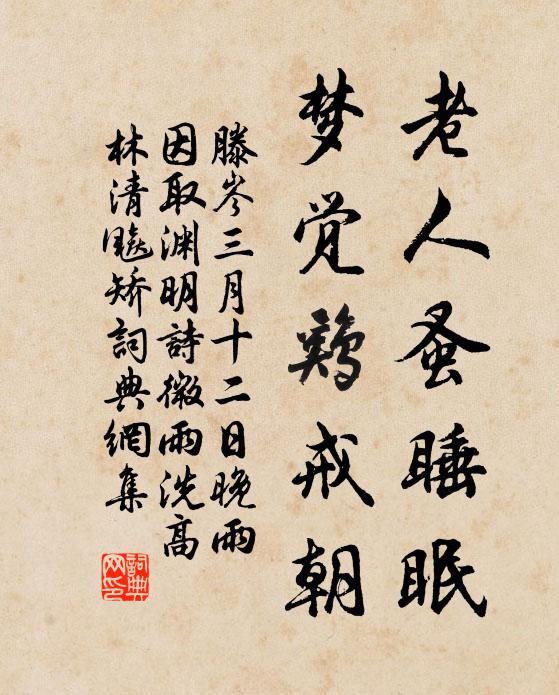 老人蚤睡眠
梦觉鸡戒朝
滕岑三月十二日晚雨
因取渊明詩微雨洗高
林清飚矫詞典網集
詞典
网印